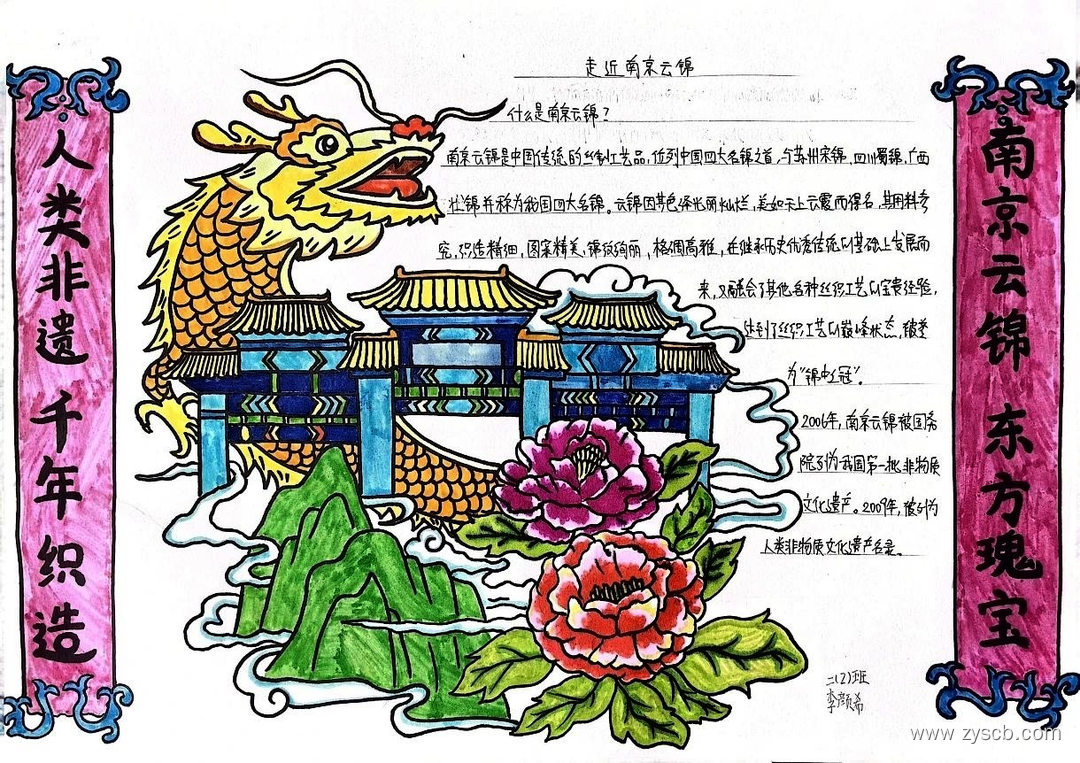 南京云锦 东方瑰宝
人类非遗 千年织造
走近南京云锦
什么是南京云锦？
南京云锦是中国传统的丝制工艺品，位列中国四大名锦之首，与苏州宋锦，四川蜀锦，广西
壮锦并称为我国四大名锦。云锦因其色泽光丽灿烂，美如天上云霞而得名，其用料考
究，织造精细，图案精美，锦纹绚丽，格调高雅，在继承历史优秀传统的基础上发展而
来，又融会了其他各种丝织工艺的宝贵经验，
达到了丝织工艺的巅峰状态，被誉
为“锦中之冠”。
2006年，南京云锦被国务
院列为我国第一批非物质
文化遗产。2009年，被列为
人类非物质文化遗产名录。
二(2)班
李颜希
www.zyscb.com